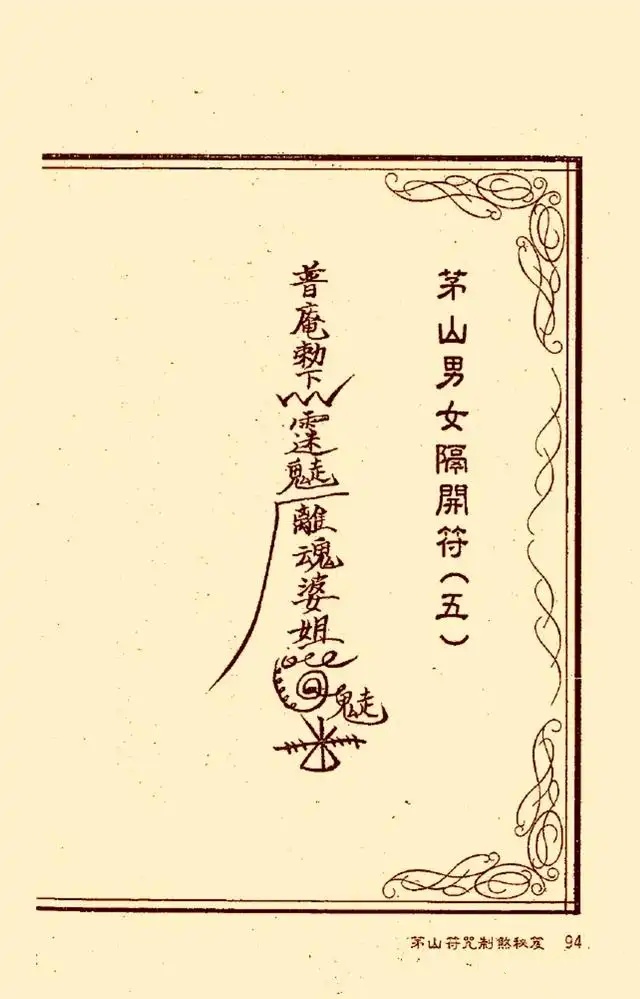 茅山男女隔開符(五)
普庵勅下
離魂婆姐
茅山符咒制煞秘笈 94